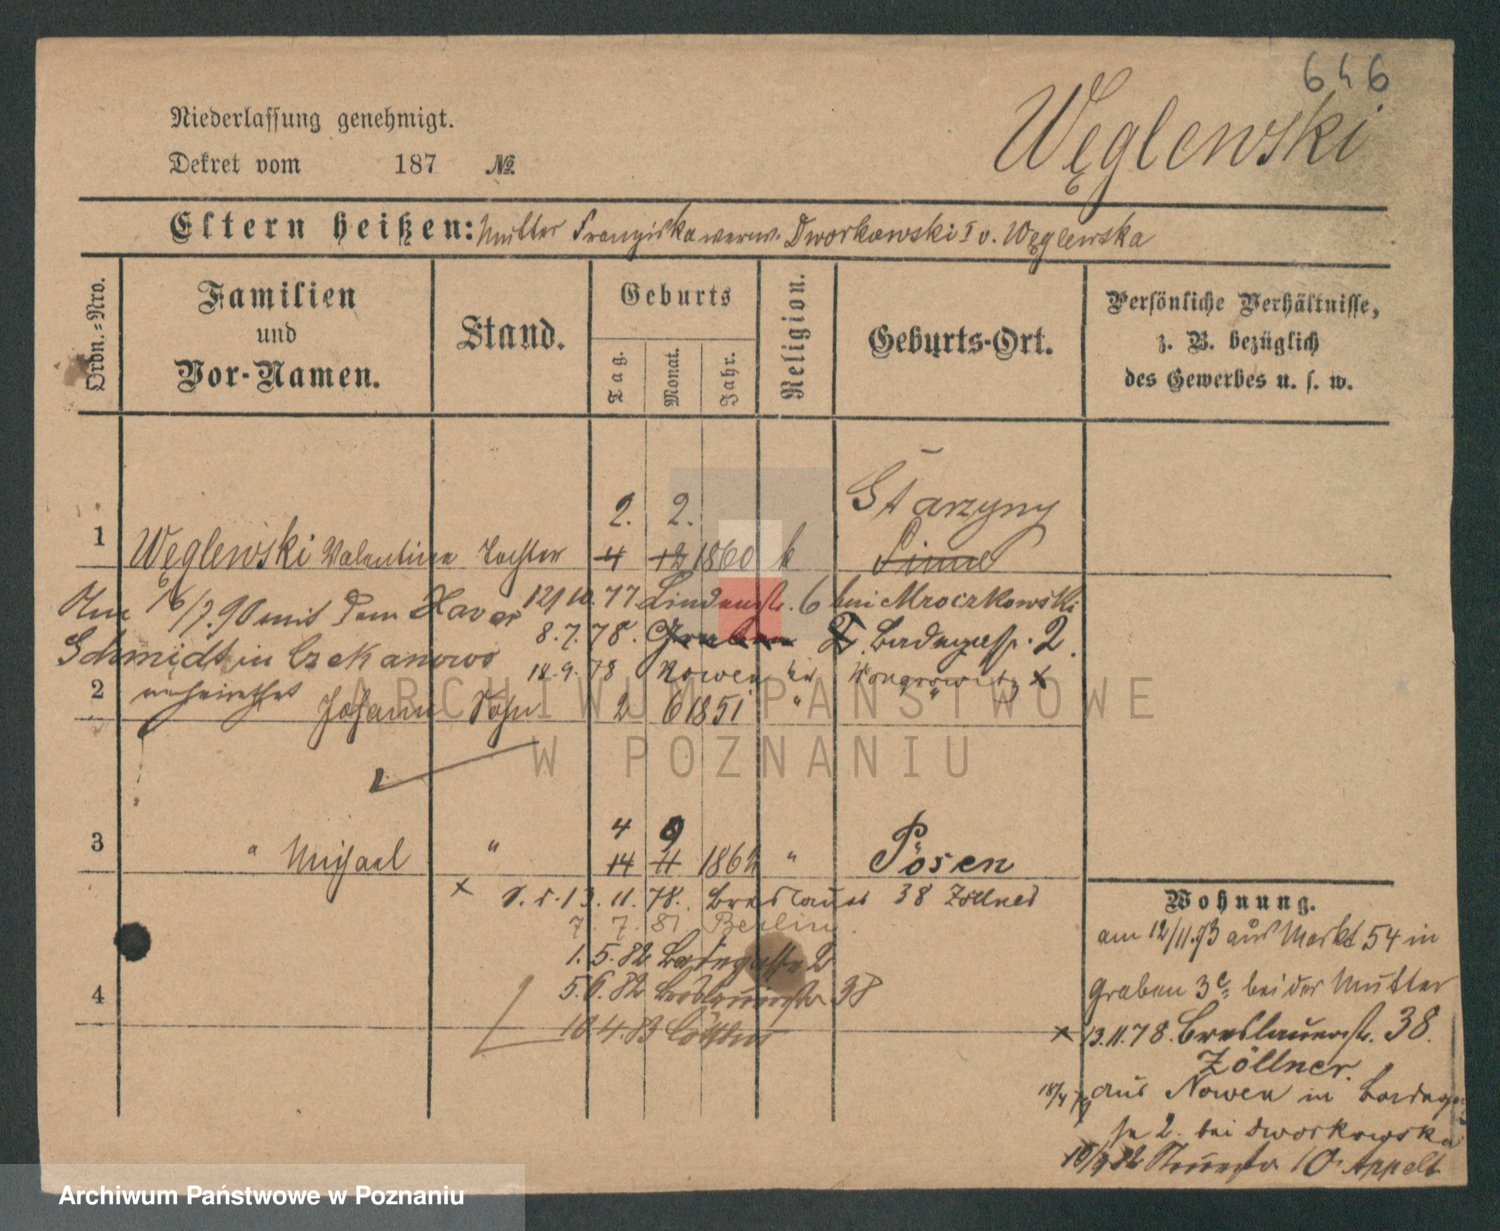 646
Niederlassung genehmigt.
Węglewski
Dekret vom 187 №
Eltern heißen: Mutter Franziska verw. Dworkowski I v. Węglewska
Ordn.-Nro.
Familien und Vor-Namen.
Stand.
Geburts
Tag. Monat. Jahr.
Religion.
Geburts-Ort.
Persönliche Verhältnisse,
z. B. bezüglich
des Gewerbes u. s. w.
2. 2. Starzyny
1 Węglewski Valentine Tochter 4 12 1860 k Pinne
Am 16/7.90 mit dem Xaver
Schmidt in Czekanowo
verheirathet
12/10.77 Lindenstr. 6 bei Mroczkowski
8.7.78. Graben 2. Badegasse 2.
18.9.78 Nowen bei Wongrowitz x
2 Johann Sohn 2 6 1851 " " "
4 9
3 " Michael " 14 11 1862 " Posen
x 13.11.78. Breslauer 38 Zöllner
7.7.81 Berlin.
1.5.82 Badegasse 2
4 5.6.82 38
10.4.83
Wohnung.
am 12/11.73 aus Markt 54 in
Graben 3c bei der Mutter
x 13.11.78. Breslauerstr. 38.
Zöllner.
aus Nowen in Badegas
se 2. bei Dworkowska
10 Appelt
ARCHIWUM PAŃSTWOWE
W POZNANIU
Archiwum Państwowe w Poznaniu